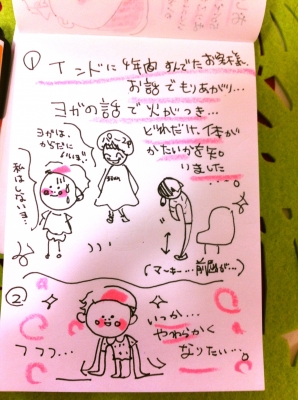 ①
インドに4年間すんでたお客様。
お話でもりあがり...
ヨガの話で火がつき...
どれだけ、体が
かたいかを知
りました
ヨガは、
からだに
いいよ。
私はしないョ。
(マーキー...前屈が...)
②
いつか...
やわらかく
なりたい...。
フフフ...